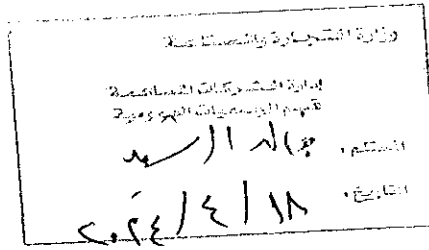 وزارة التجارة والصناعة
إدارة الشركات المساهمة
قسم الجمعيات العمومية
المستلم : خالد السيد
التاريخ : ١٨ / ٤ / ٢٠٢٤